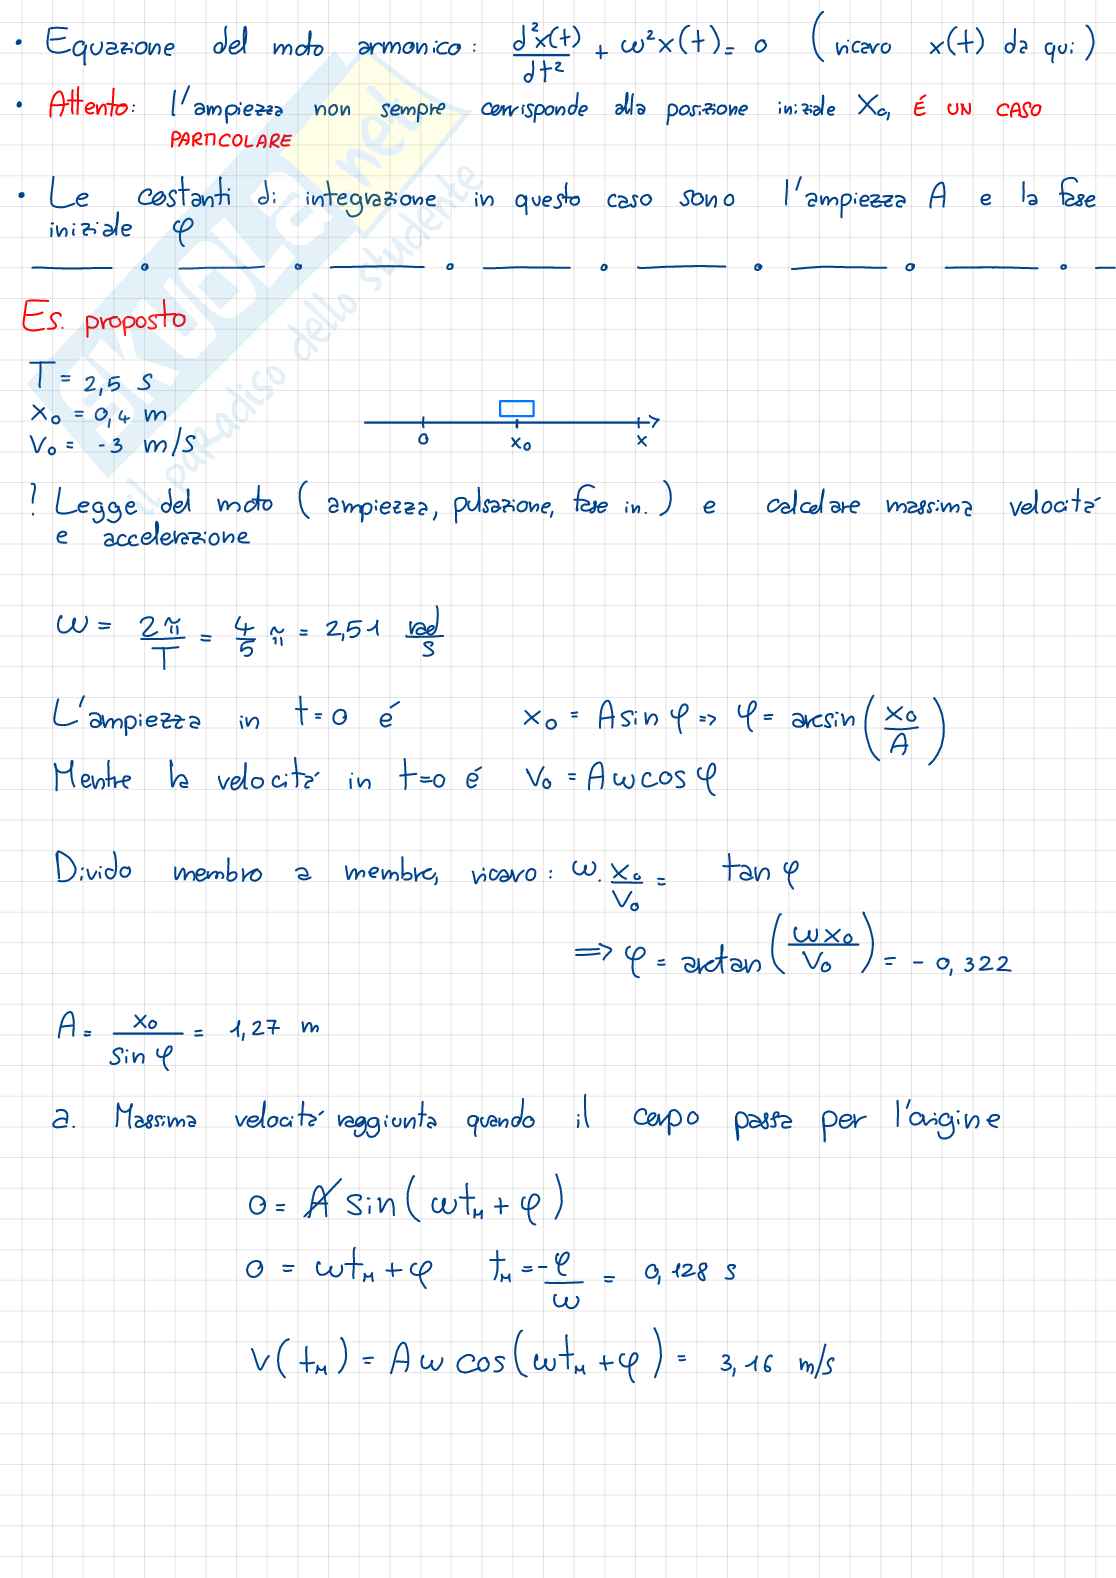 • Equazione del moto armonico: d²x(t)/dt² + ω²x(t) = 0 (ricavo x(t) da qui)
• Attento: l'ampiezza non sempre corrisponde alla posizione iniziale X₀, É UN CASO
PARTICOLARE
• Le costanti di integrazione in questo caso sono l'ampiezza A e la fase
iniziale φ
Es. proposto
T = 2,5 s
x₀ = 0,4 m
V₀ = -3 m/s
0 x₀ x
? Legge del moto (ampiezza, pulsazione, fase in.) e calcolare massima velocitá
e accelerazione
ω = 2π/T = 4/5 π = 2,51 rad/s
L'ampiezza in t=0 é x₀ = A sin φ => φ = arcsin(x₀/A)
Mentre la velocitá in t=0 é V₀ = A ω cos φ
Divido membro a membro, ricavo: ω · x₀/V₀ = tan φ
=> φ = arctan(ωx₀/V₀) = -0,322
A = x₀/sin φ = 1,27 m
a. Massima velocitá raggiunta quando il corpo passa per l'origine
0 = A sin(ωt_M + φ)
0 = ωt_M + φ t_M = -φ/ω = 0,128 s
V(t_M) = A ω cos(ωt_M + φ) = 3,16 m/s
SKUOLA.net
il paradiso dello studente